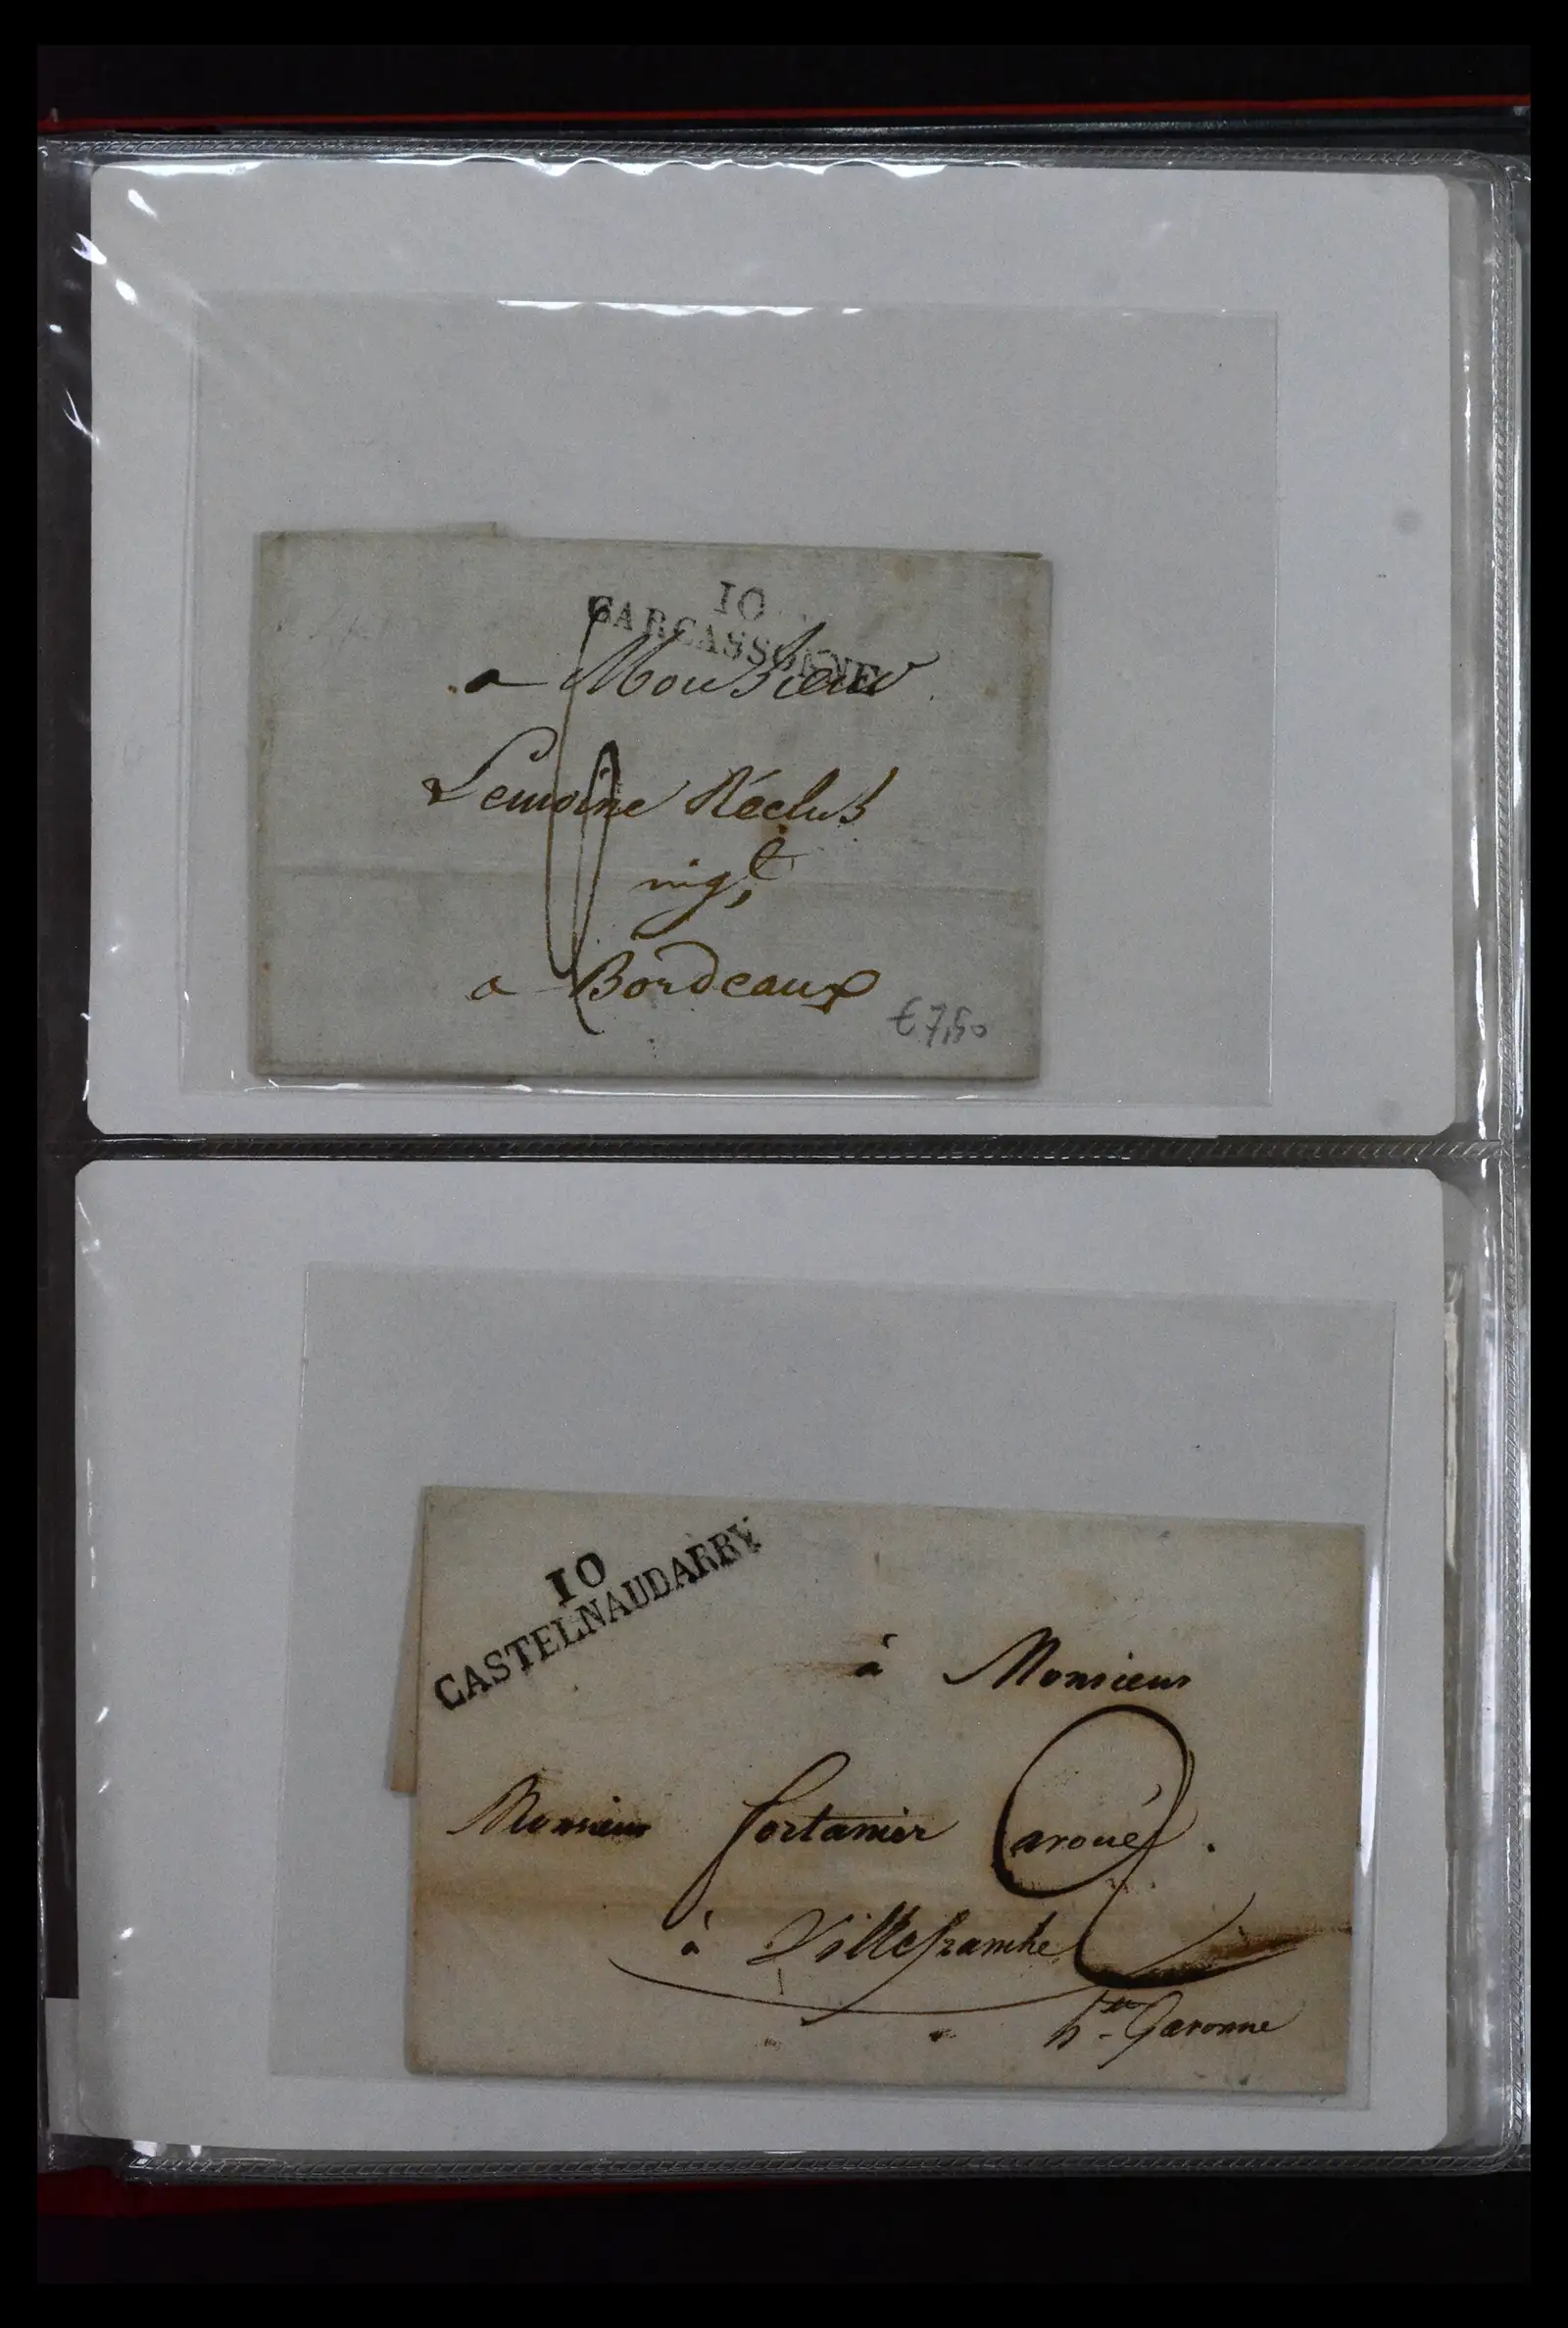 10
CARCASSONNE
a Monsieur
Lemoine Réclus
nigt
a Bordeaux
€7,50
10
CASTELNAUDARRY
à Monsieur
Monsieur fortanier avoué
à Villefranche
hte Garonne